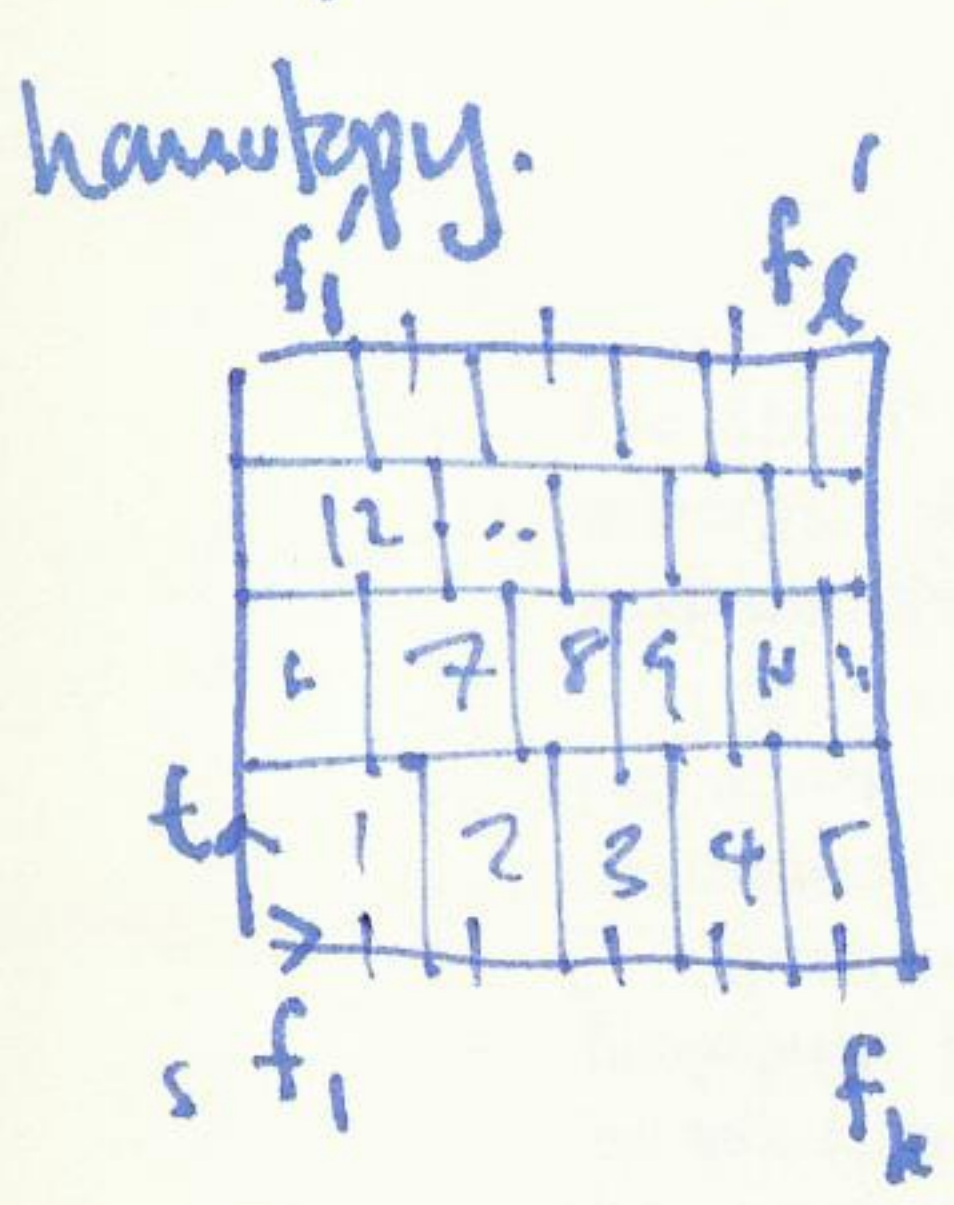 homotopy.
f₁' fₗ'
12 ...
6 7 8 9 10 11
t
1 2 3 4 5
s f₁ fₖ